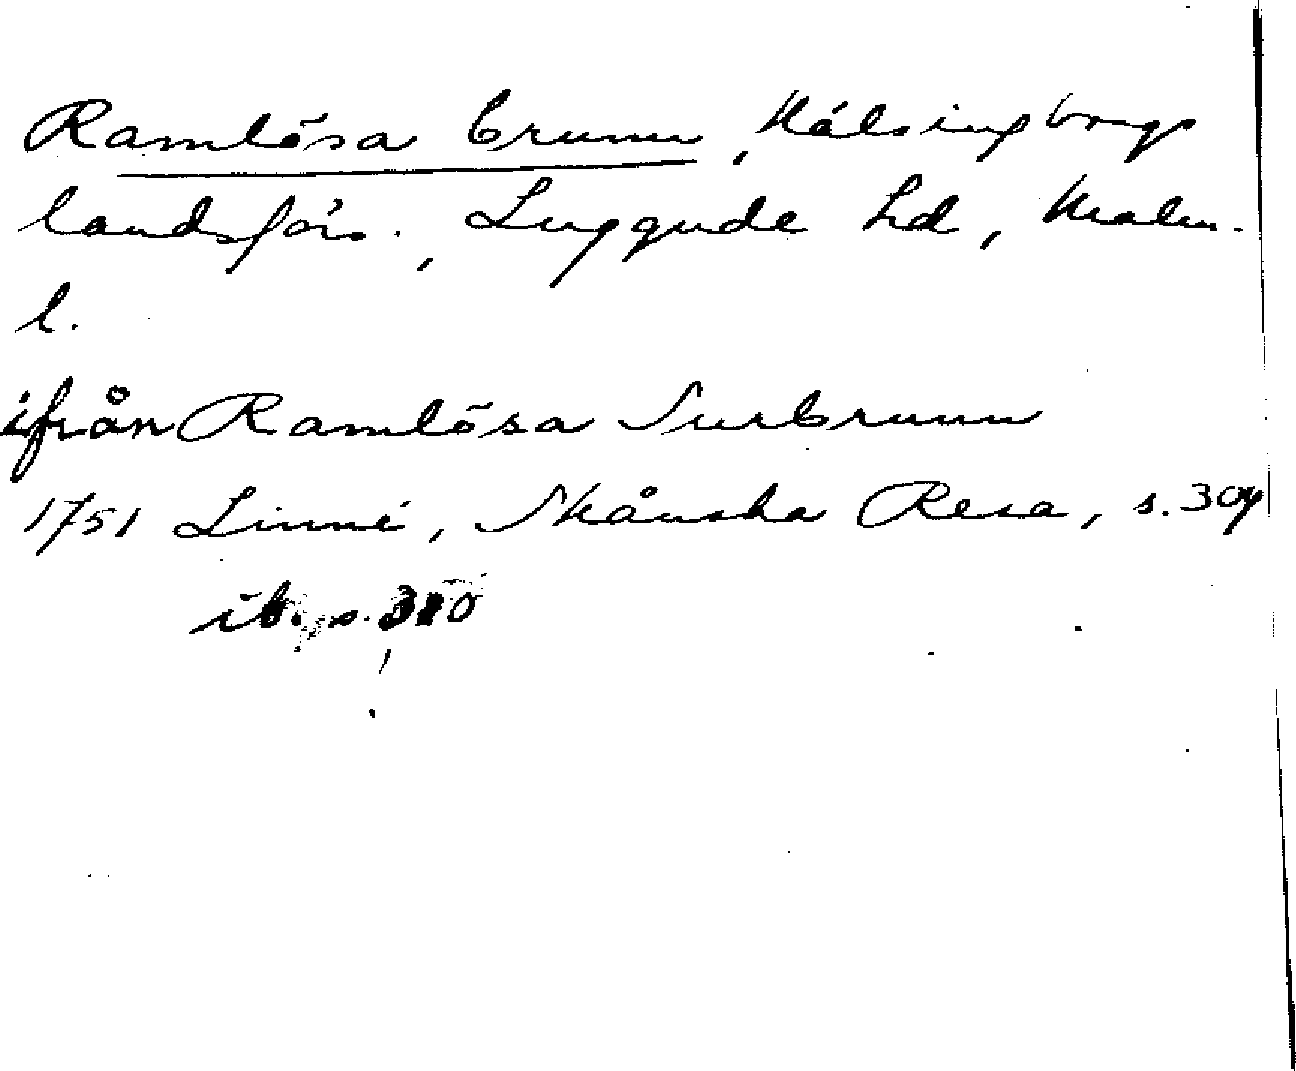 Ramlösa brunn, Hälsingborgs
landsförs., Luggude hd, Malm.
l.
ifrån Ramlösa Surbrunn
1751 Linné, Skånska Resa, s.
ib. s. 310